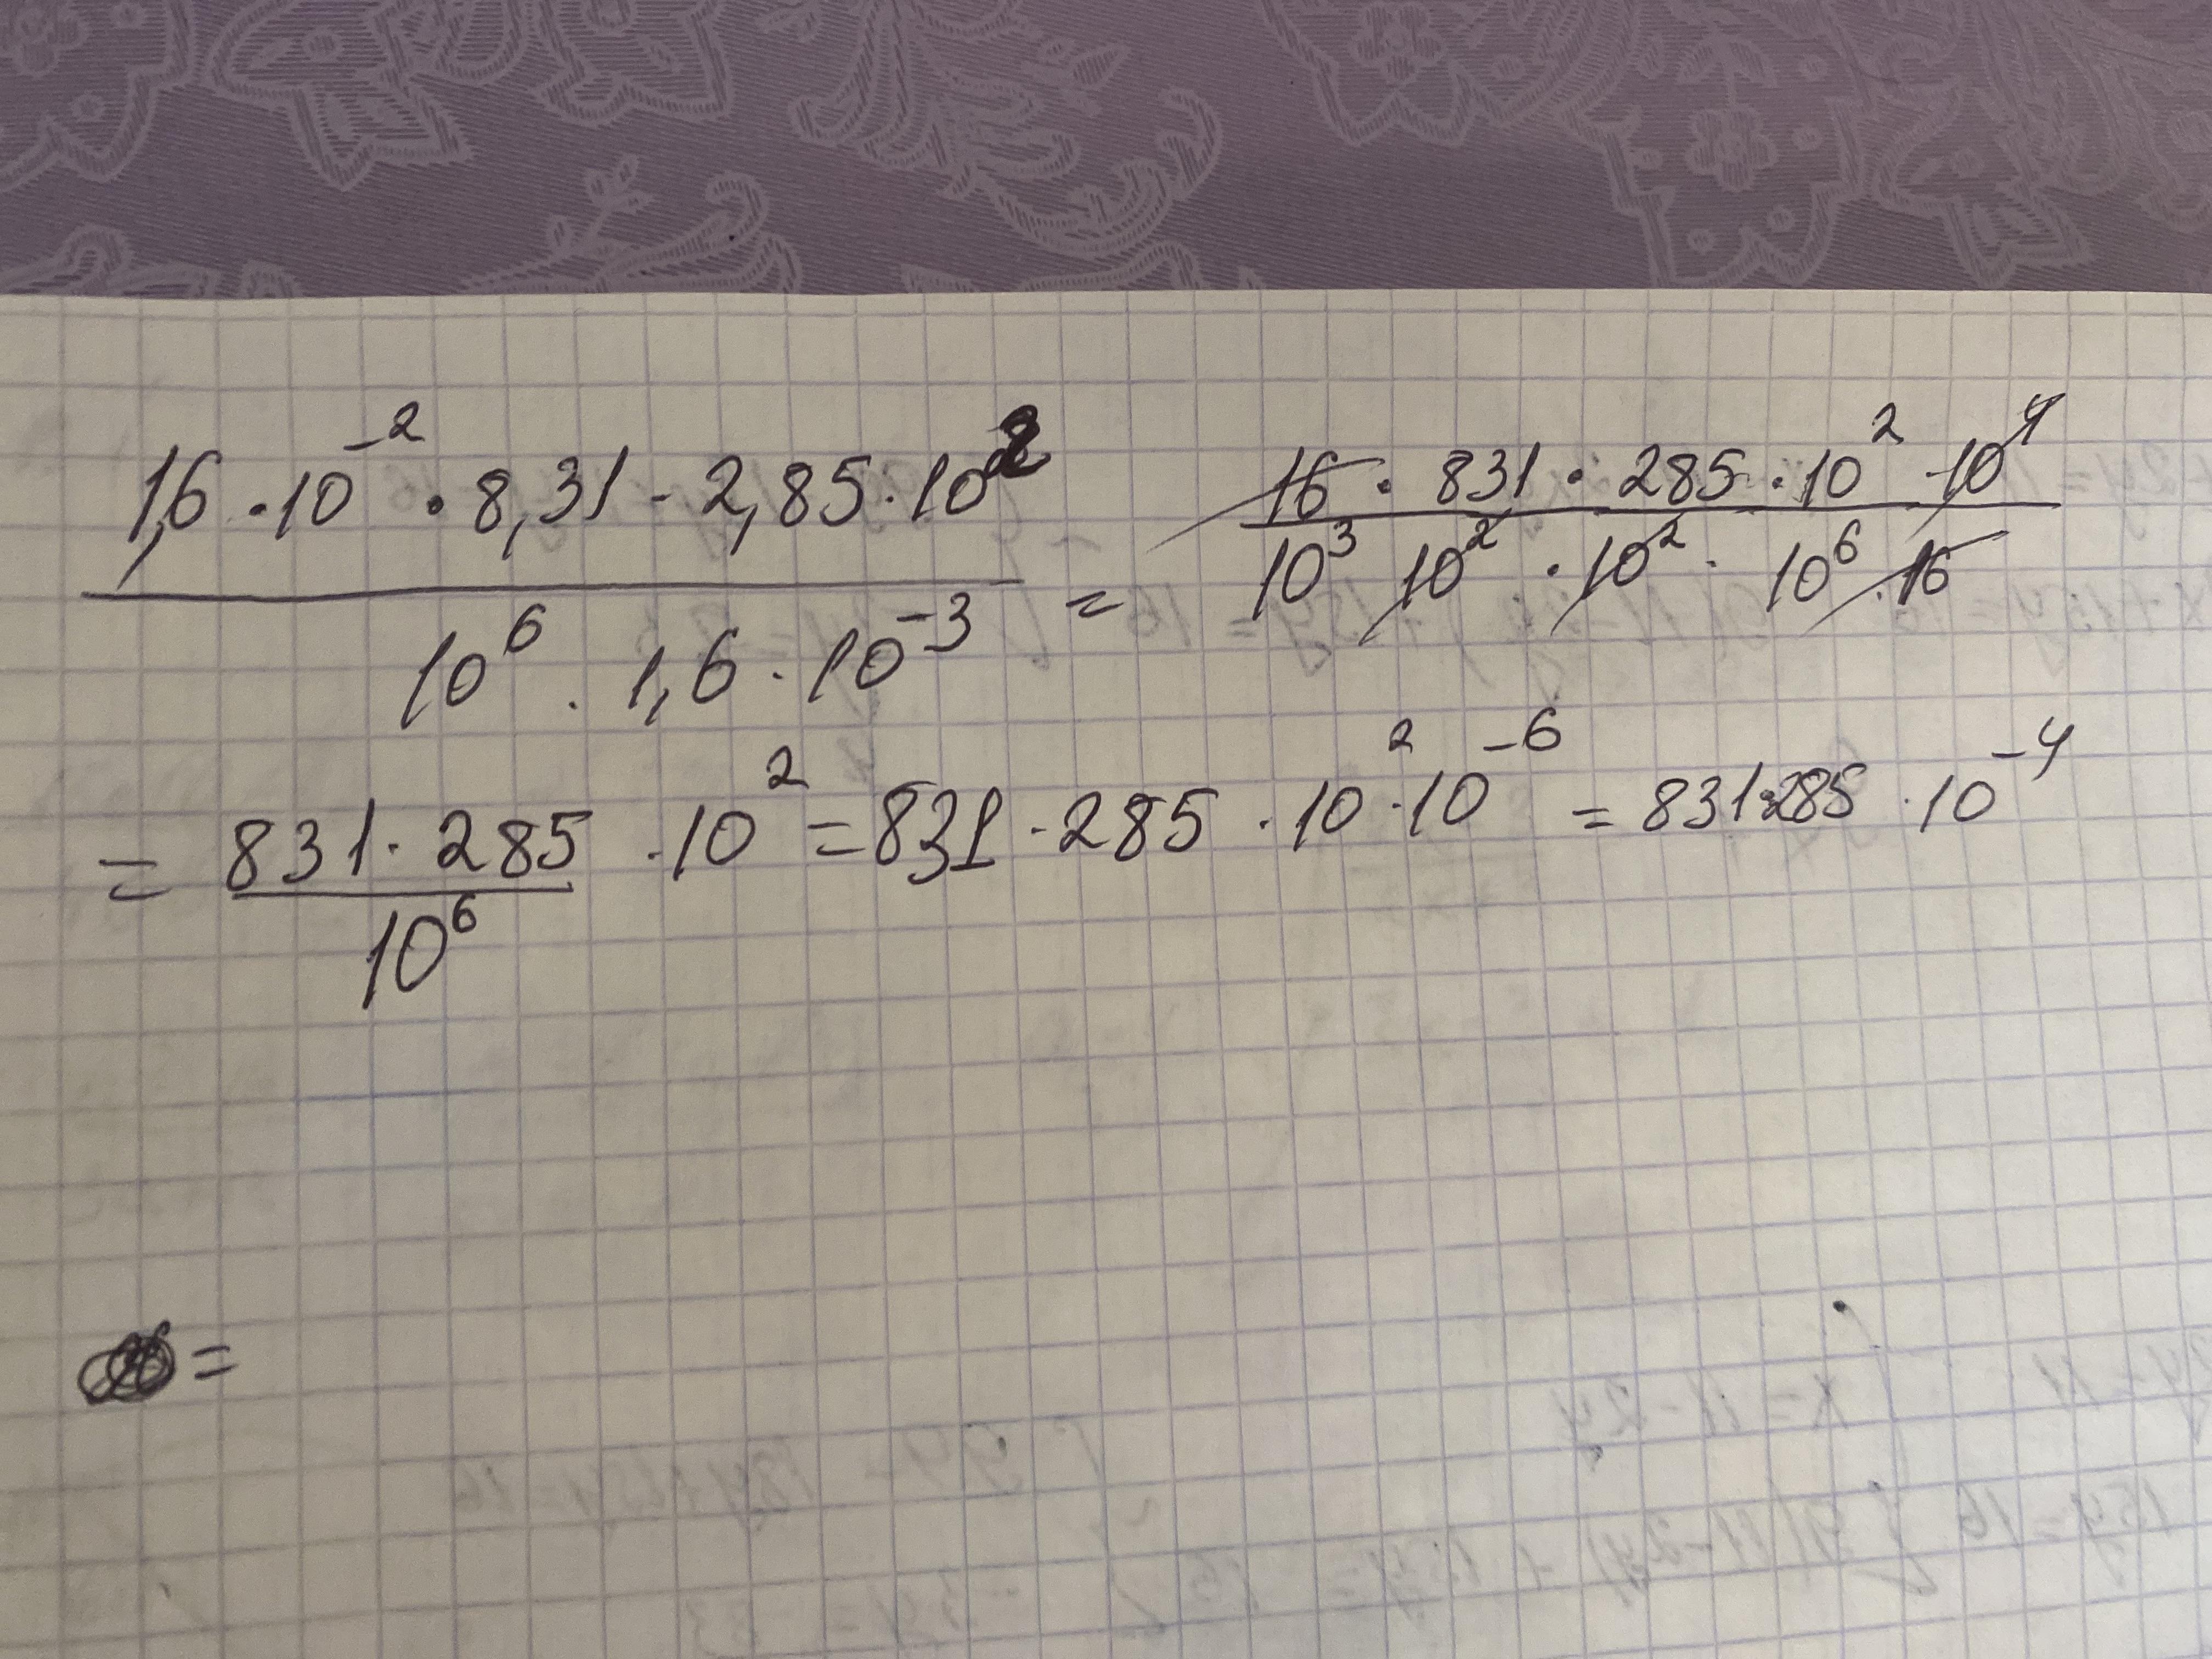 1,6 · 10⁻² · 8,31 · 2,85 · 10² / 10⁶ · 1,6 · 10⁻³ = 16 · 831 · 285 · 10² · 10⁴ / 10³ 10² · 10² · 10⁶ · 16
= 831 · 285 / 10⁶ · 10² = 831 · 285 · 10² · 10⁻⁶ = 831·285 · 10⁻⁴
=